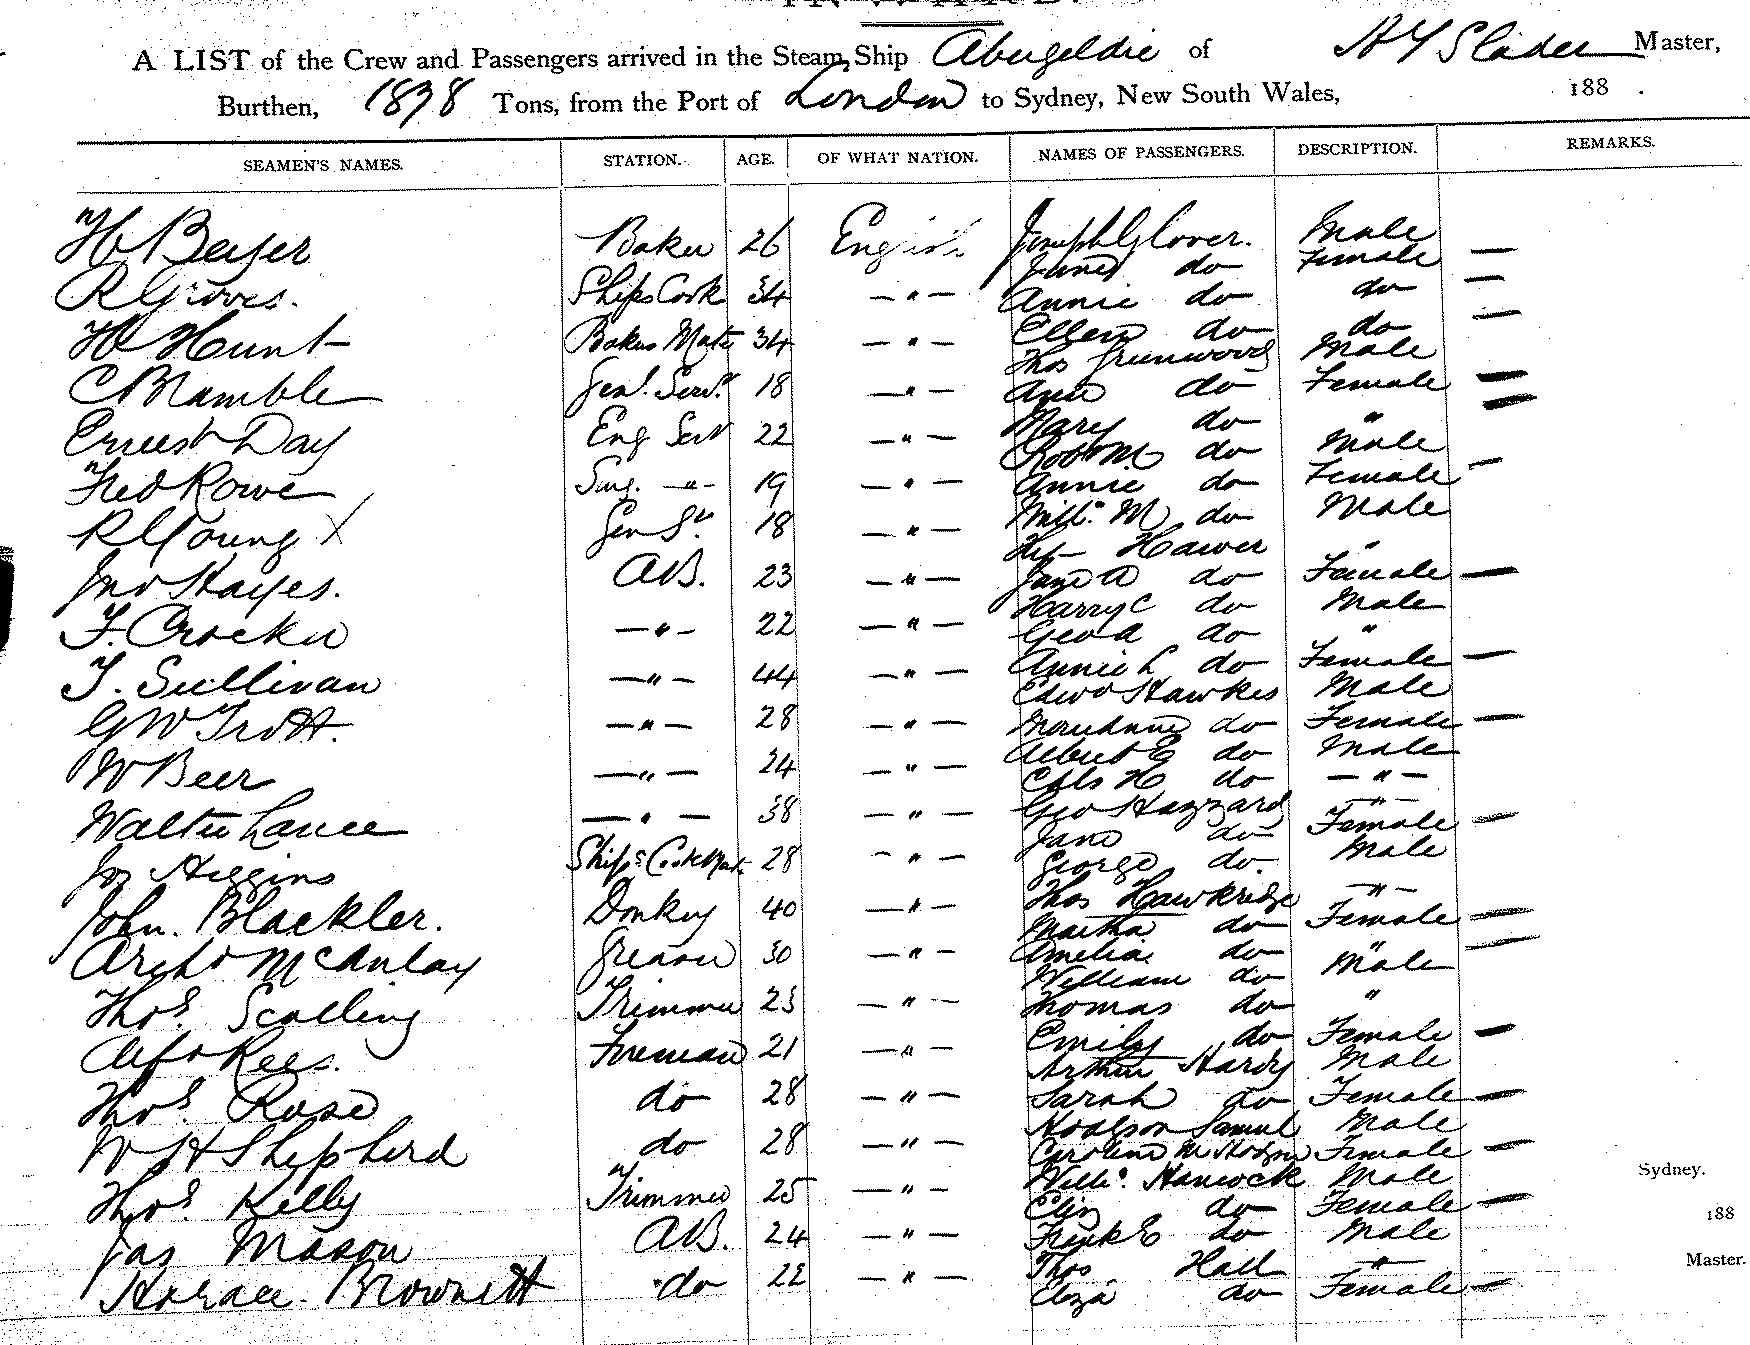 A LIST of the Crew and Passengers arrived in the Steam Ship Abergeldie of H Y Slader Master,
Burthen, 1898 Tons, from the Port of London to Sydney, New South Wales, 188 .
SEAMEN'S NAMES. STATION. AGE. OF WHAT NATION. NAMES OF PASSENGERS. DESCRIPTION. REMARKS.
H Beyer Baker 26 English Joseph Glover. Male
do Female —
R Groves. Ships Cook 34 — " — Annie do do —
H Hunt Bakers Mate 34 — " — Ellen do do —
Thos Greenwood Male
C Bramble Genl. Servt 18 — " — Ann do Female —
Ernest Day Eng Servt 22 — " — Mary do " —
Robt M. do Male
Fred Rowe Surg. — " — 19 — " — Annie do Female —
R Young X Gen St. 18 — " — Willm. M do Male
Hawer "
Jno Hayes. AB. 23 — " — Jane A do Female —
Harry C do Male
F. Crocker — " — 22 — " — Geo A do "
T. Sullivan — " — 44 — " — Annie L do Female —
Edwd Hawkes Male
G W Trott. — " — 28 — " — do Female —
W Beer — " — 24 — " — Albert E do Male
Chls H do — " —
Walter Lance — " — 38 — " — Geo Hazzard — " —
Jane do Female —
Jos Higgins Ships Cook Mate 28 — " — George do. Male
Thos Hawkridge — " —
John. Blackler. Donkey 40 — " — Martha do Female —
Archd McAulay Greaser 30 — " — Amelia do " —
William do Male
Thos. Scolling Trimmer 23 — " — Thomas do "
Alfd Rees. Fireman 21 — " — Emily do Female —
Arthur Hardy Male
Thos. Rose do 28 — " — Sarah do Female —
Hodgson Samuel Male
W H Shepherd do 28 — " — Caroline M Hodgson Female —
Sydney.
Thos. Kelly Trimmer 25 — " — Willm. Hancock Male
Eliz do Female —
188
Jas Mason AB. 24 — " — Fredk E do Male
Master.
Horace Brownett do 22 — " — Thos Hall "
Eliza do Female —